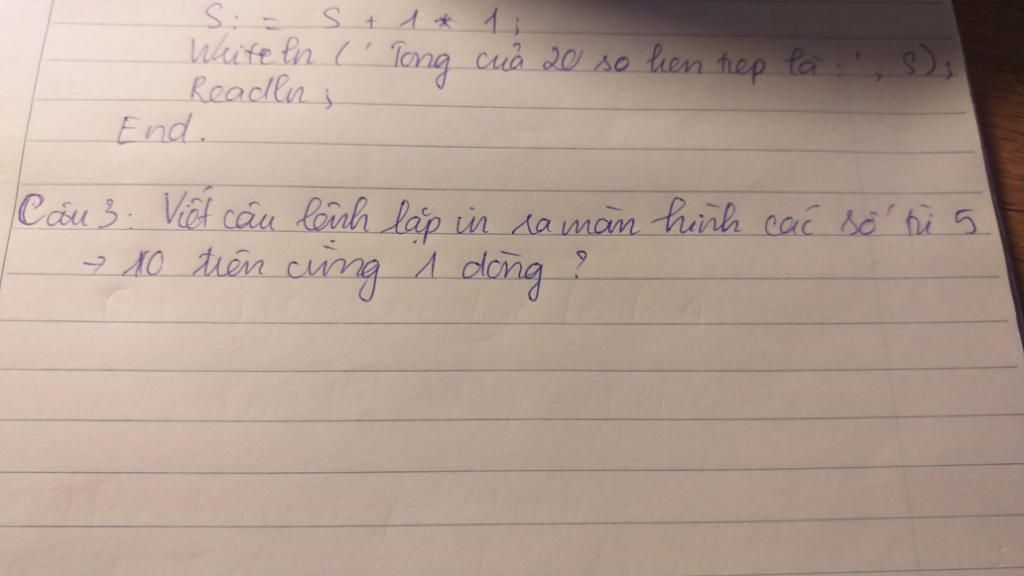 S := S + 1 * 1;
Writeln (' Tong cuả 20 so lien tiep là :', S);
Readln;
End.
Câu 3: Viết câu lệnh lặp in ra màn hình các số từ 5
→ 10 trên cùng 1 dòng ?